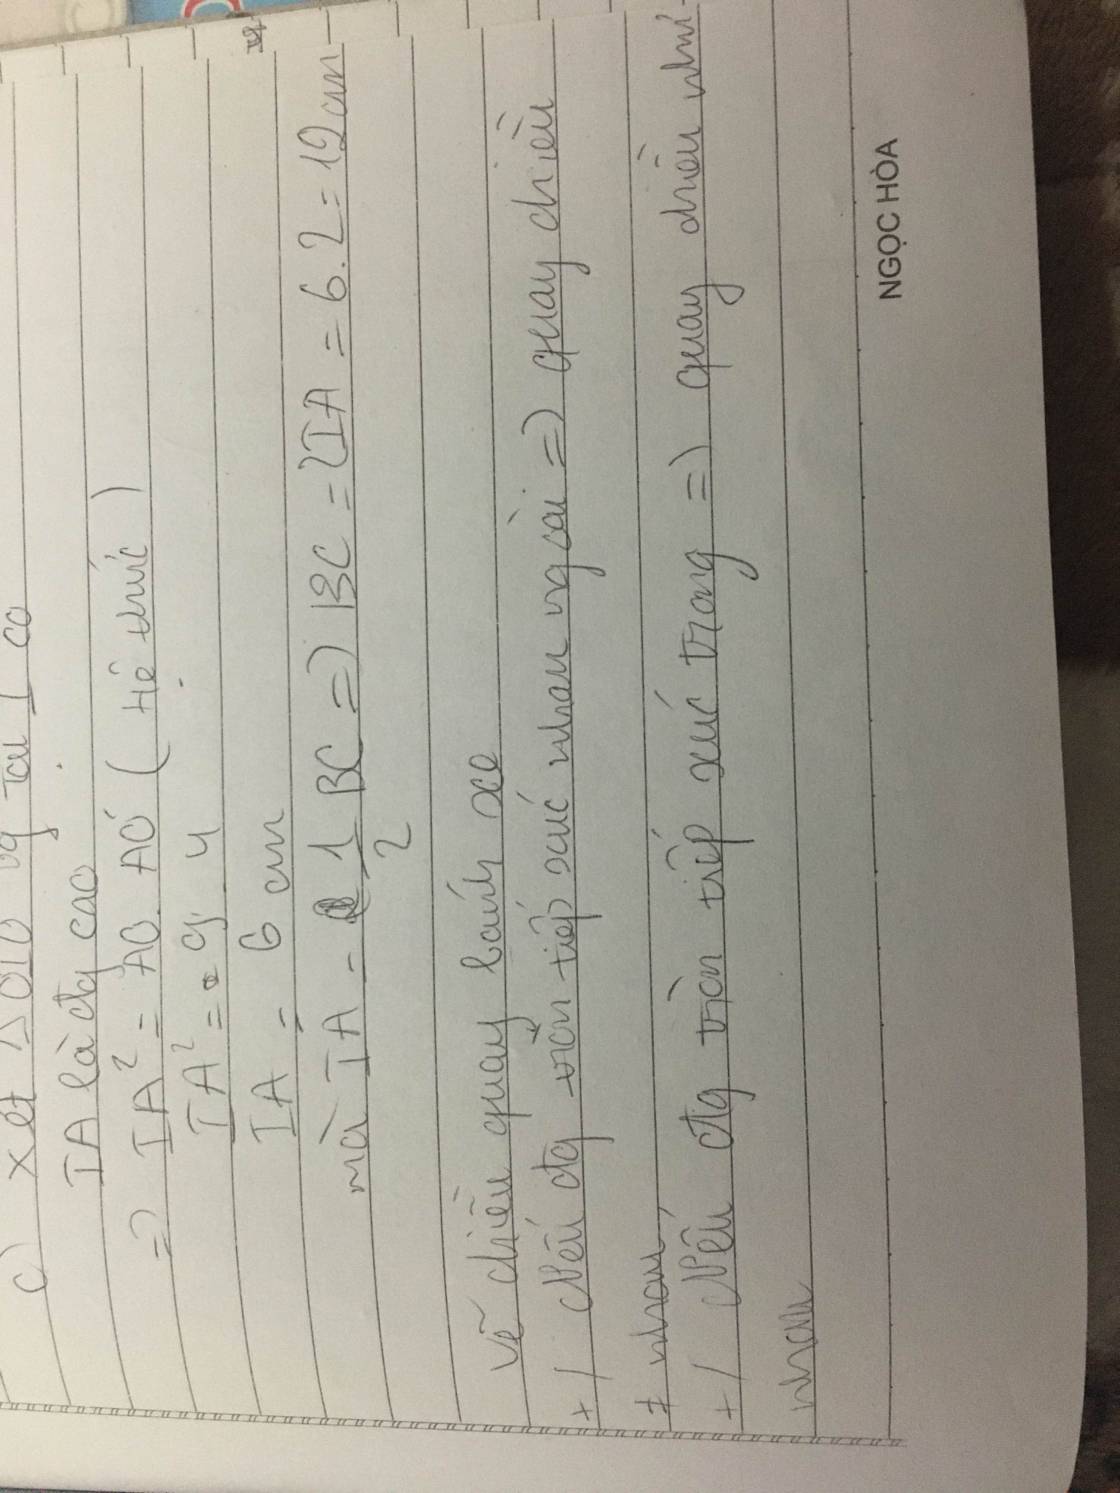 c) xét Δ OIO' vg tại I có
IA là đg cao
=> IA² = AO. AO' ( Hệ thức )
IA² = 9. 4
IA = 6 cm
mà IA = 1/2 BC => BC = 2IA = 6.2 = 12cm
vẽ chiều quay bánh xe
+ / Nếu đg tròn tiếp xúc nhau ngoài => quay chiều
≠ nhau
+ / Nếu đg tròn tiếp xúc trong => quay chiều như
nhau
NGỌC HÒA